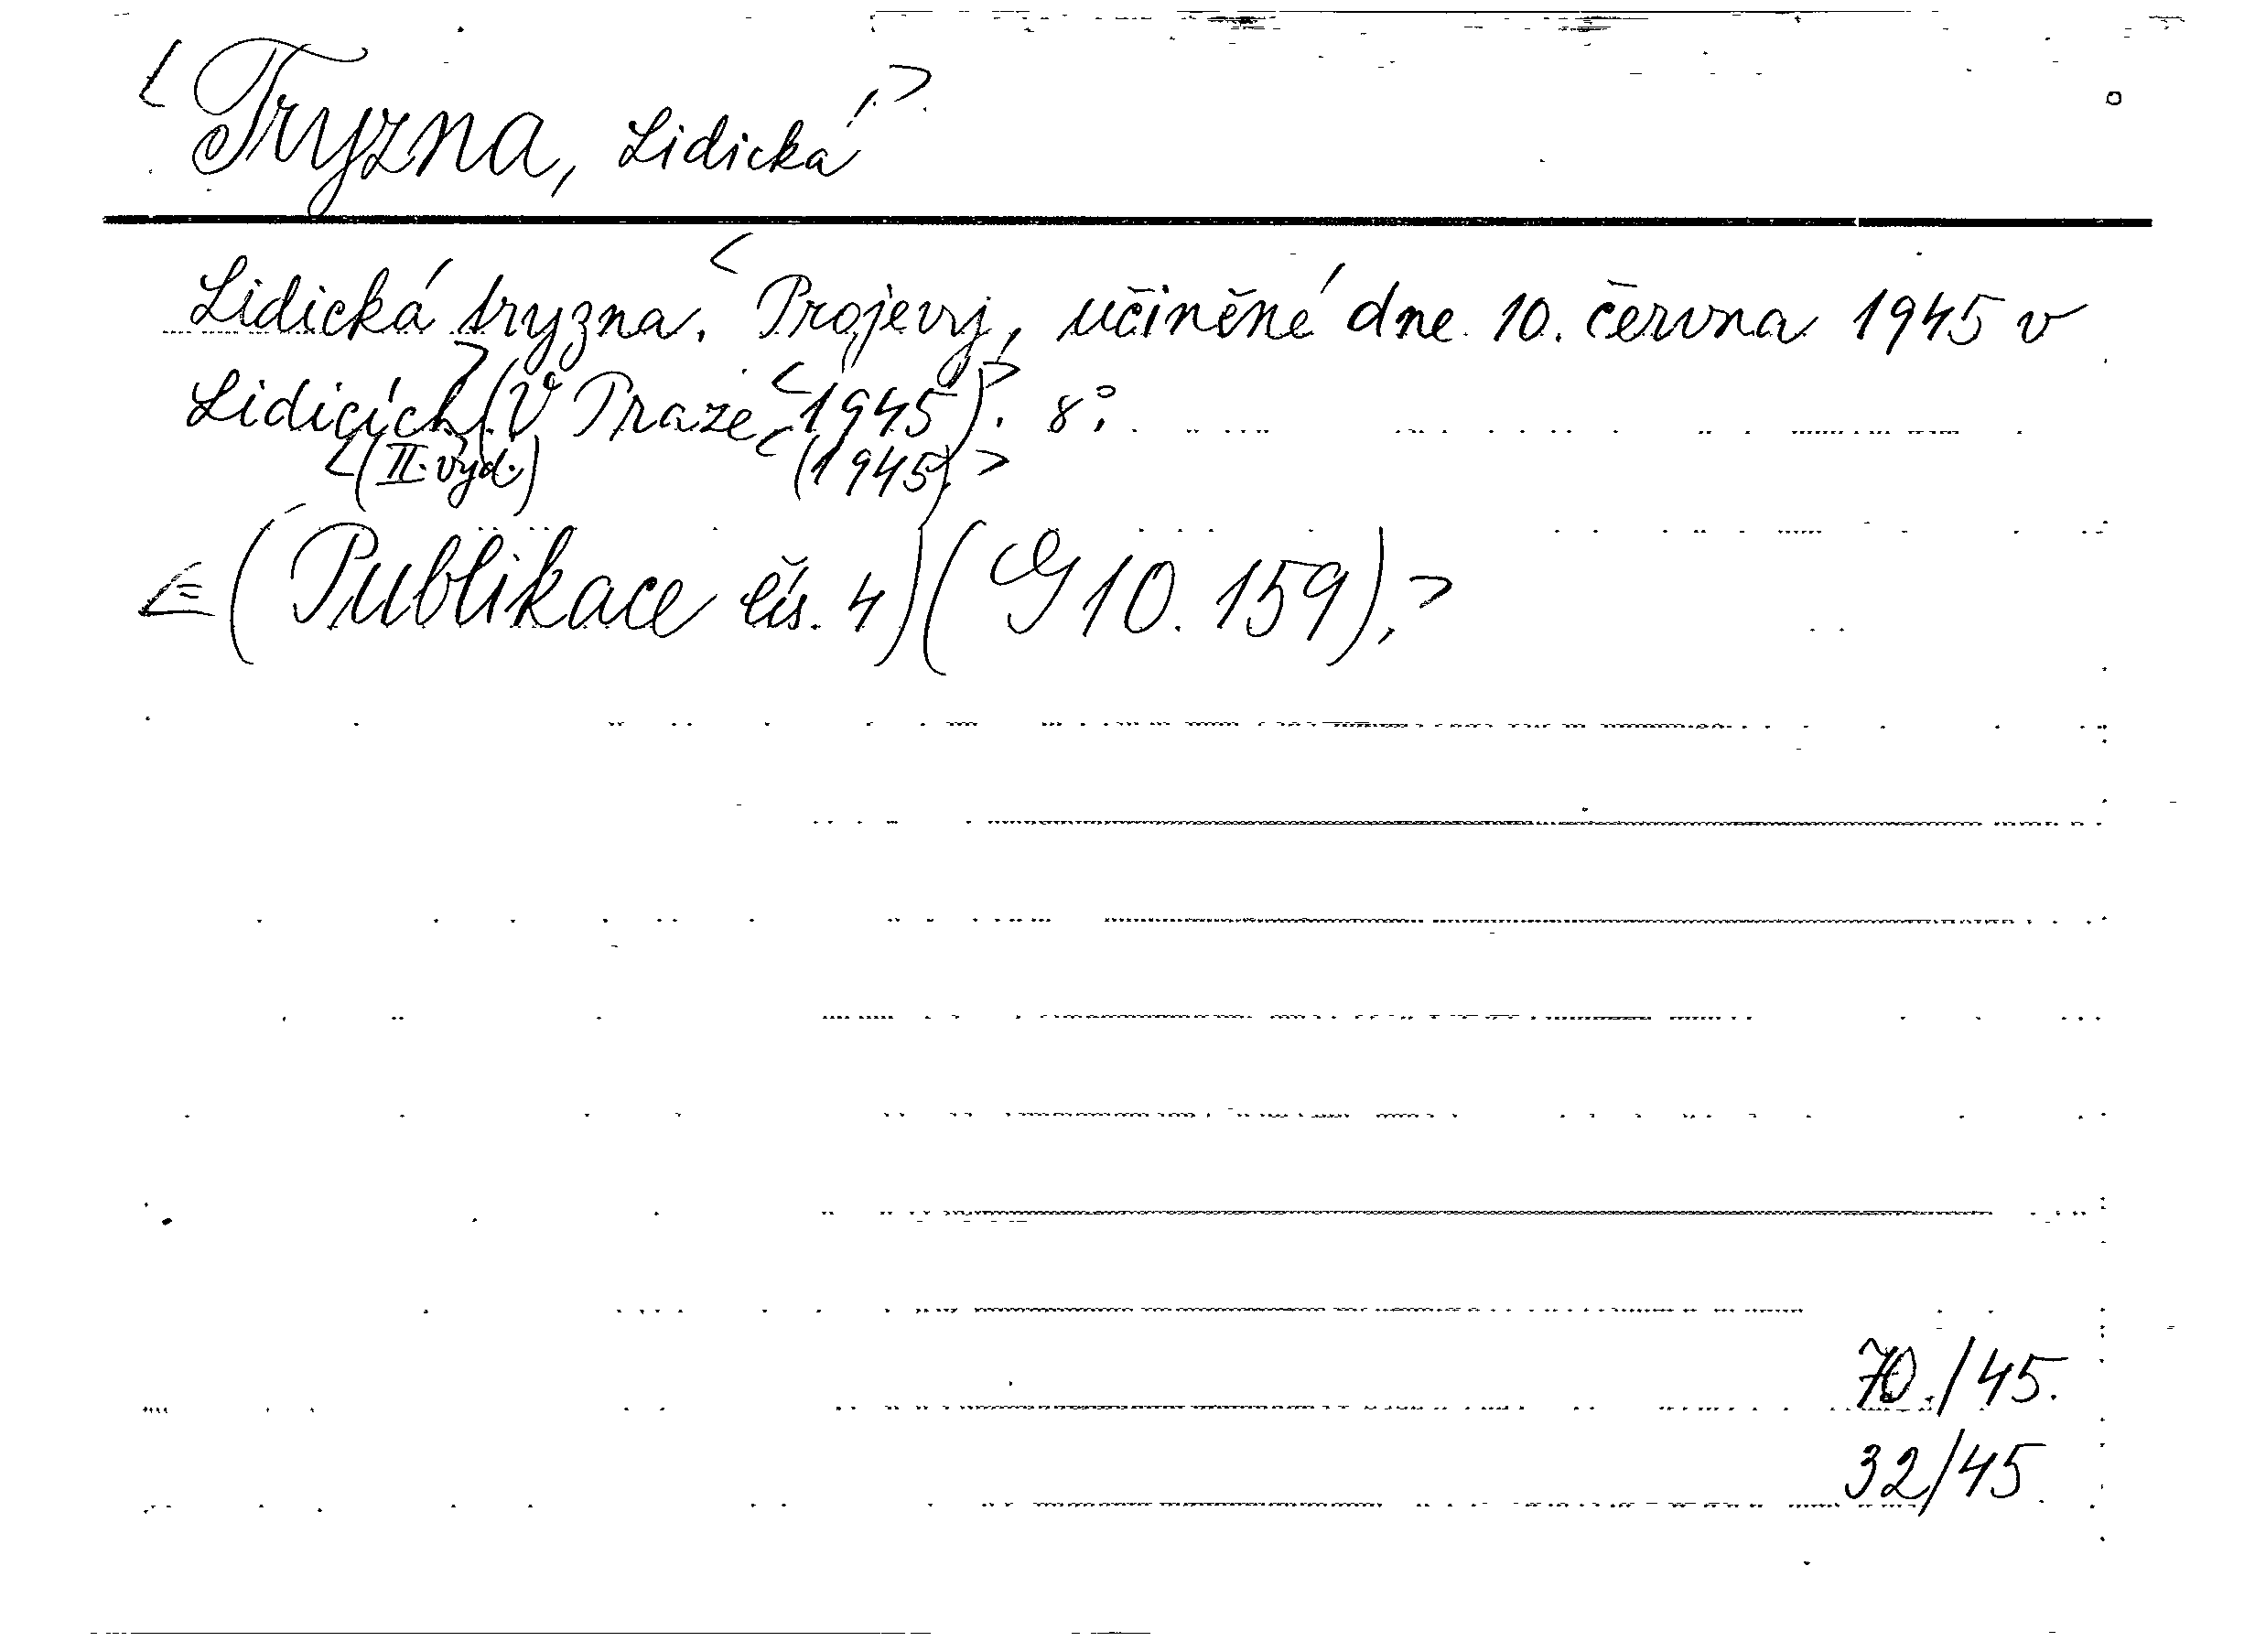 < Tryzna, Lidická.>
Lidická tryzna. < Projevy, učiněné dne 10. června 1945 v
Lidicích.> (V Praze < 1945).> 8°.
<(II. vyd.) < (1945).>
<= (Publikace čís. 4) (G 10. 159).>
70./45.
32/45